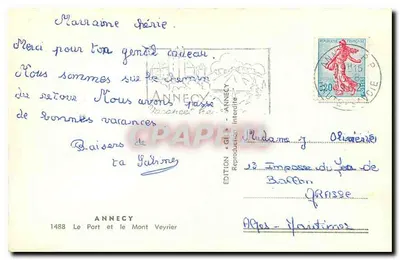 Marraine chérie.
Merci pour ton gentil cadeau.
Nous sommes sur le chemin
du retour Nous avons passé
de bonnes vacances.
Baisers de
ta
ANNECY
1488 Le Port et le Mont Veyrier
EDITION ANNECY
Reproduction interdite
ANNECY
0,20
CPARAMA
Madame J
13 Impasse du Jeu de
Ballon
GRASSE
Alpes-Maritimes